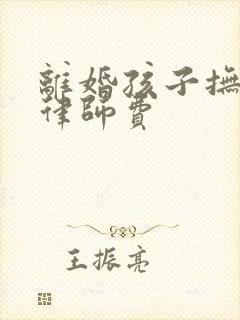 離婚孩子撫
律師費
王振亮